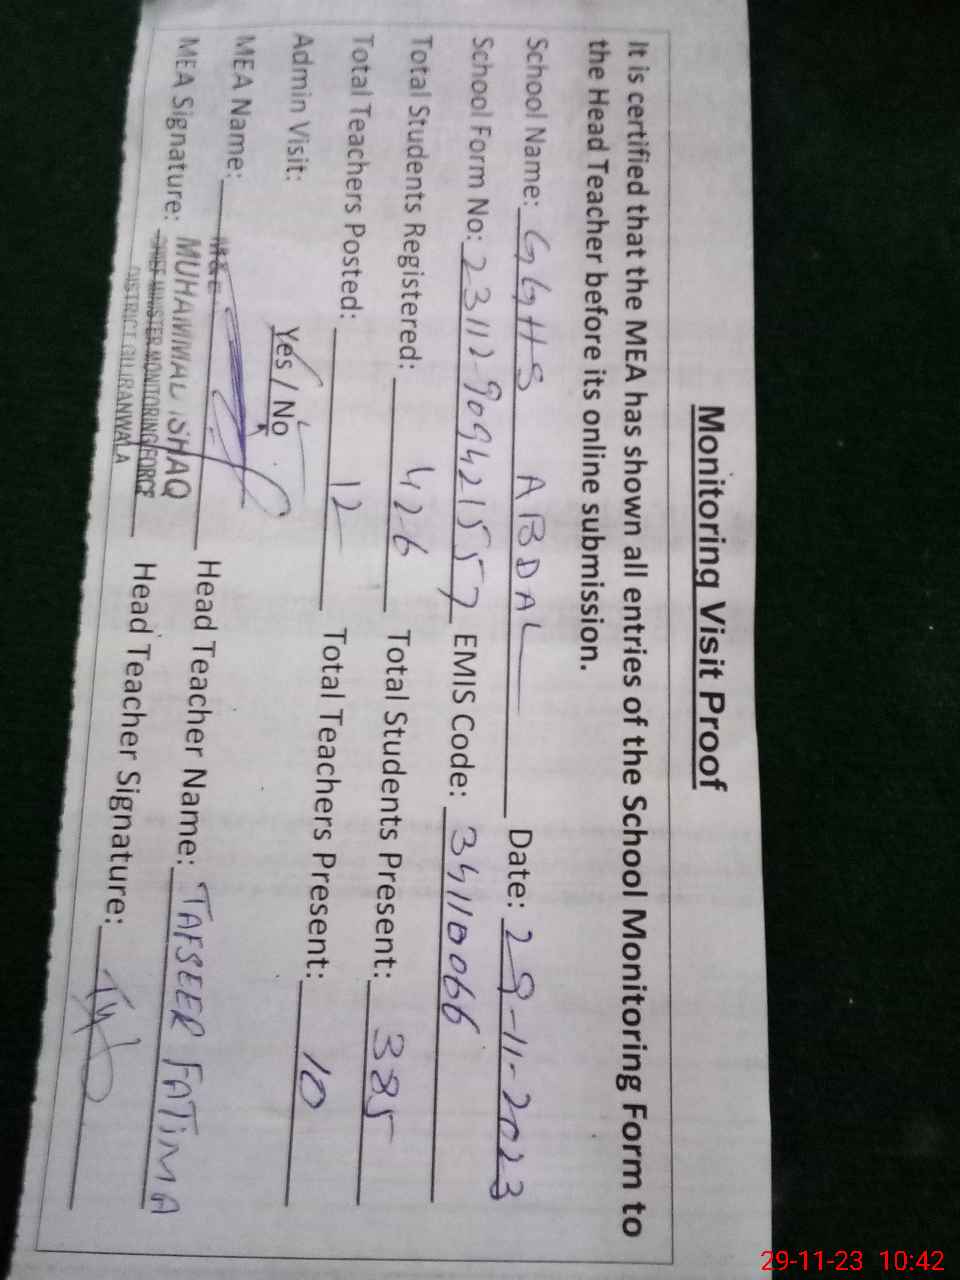 Monitoring Visit Proof
It is certified that the MEA has shown all entries of the School Monitoring Form to
the Head Teacher before its online submission.
School Name: GGHS ABDAL Date: 29-11-2023
School Form No: 23112909421557 EMIS Code: 34110066
Total Students Registered: 426 Total Students Present: 385
Total Teachers Posted: 12 Total Teachers Present: 10
Admin Visit: Yes / No
MEA Name: Head Teacher Name: TAFSEER FATIMA
MEA Signature: MUHAMMAD ISHAQ Head Teacher Signature:
M&E
CHIEF MINISTER MONITORING FORCE
DISTRICT GUJRANWALA
29-11-23 10:42